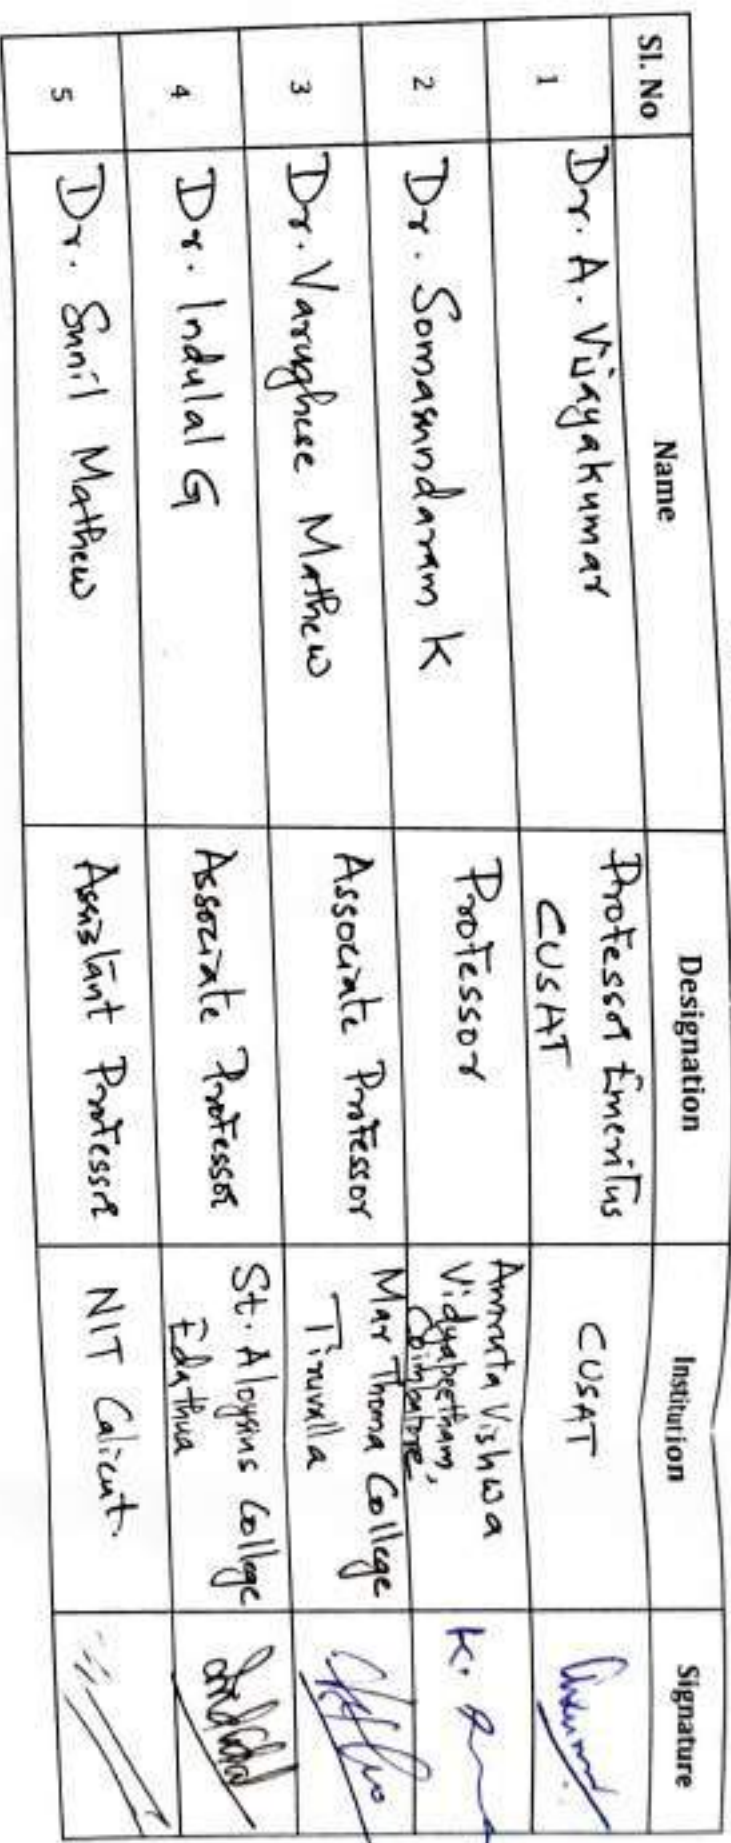 Sl. No Name Designation Institution Signature
1 Dr. A. Vijayakumar Professor Emeritus CUSAT
CUSAT
2 Dr. Somasundaram K Professor Amruta Vishwa
Vidyapeetham,
Coimbatore
K.
3 Dr. Varughese Mathew Associate Professor Mar Thoma College
Tiruvalla
4 Dr. Indulal G Associate Professor St. Aloysius College
Edathua
5 Dr. Sunil Mathew Assistant Professor NIT Calicut.